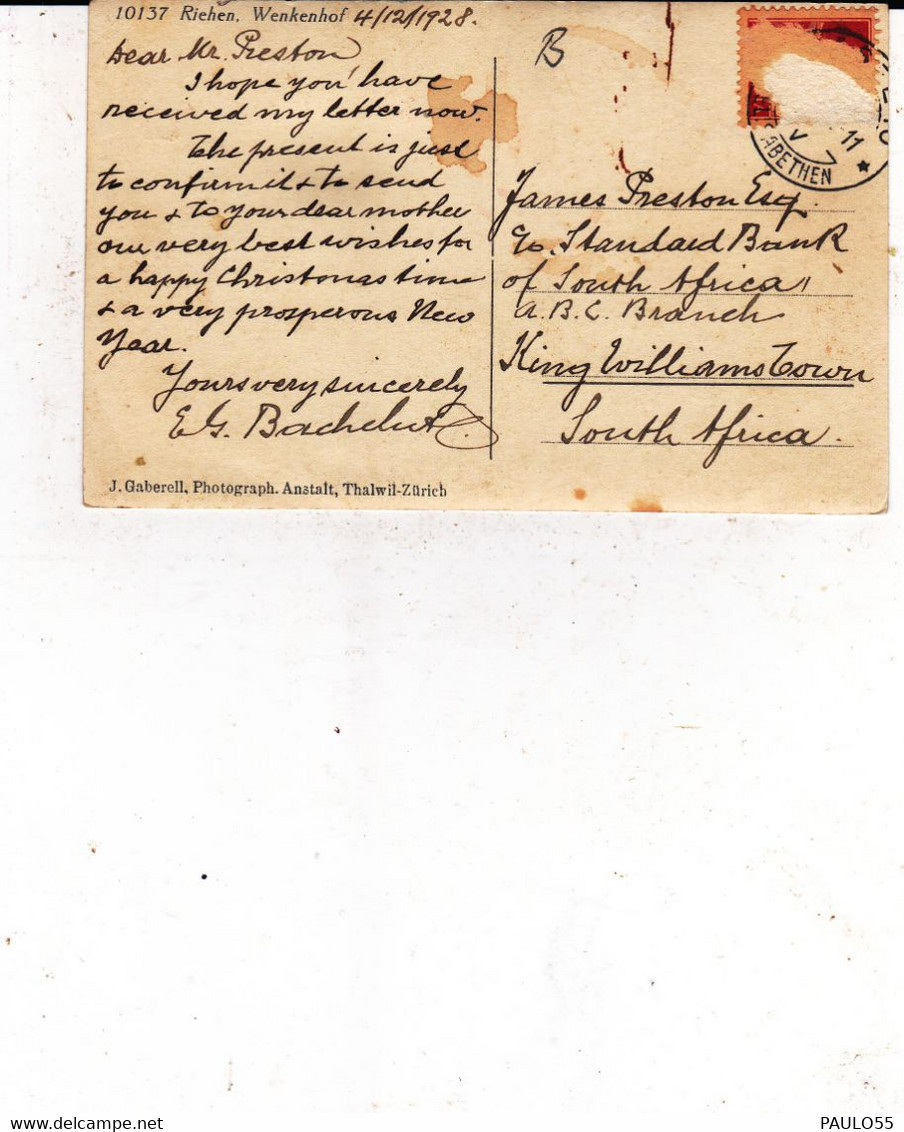 10137 Riehen, Wenkenhof 4/12/1928.
Dear Mr. Preston
I hope you have
received my letter now.
The present is just
to confirm it & to send
you & to your dear mother
our very best wishes for
a happy Christmas time
& a very prosperous New
Year.
Yours very sincerely
E. G.
J. Gaberell, Photograph. Anstalt, Thalwil-Zürich
B
V
11
ABETHEN
James Preston Esq.
c/o. Standard Bank
of South Africa,
a. B. C. Branch
King Williams Town
South Africa.
PAULO55